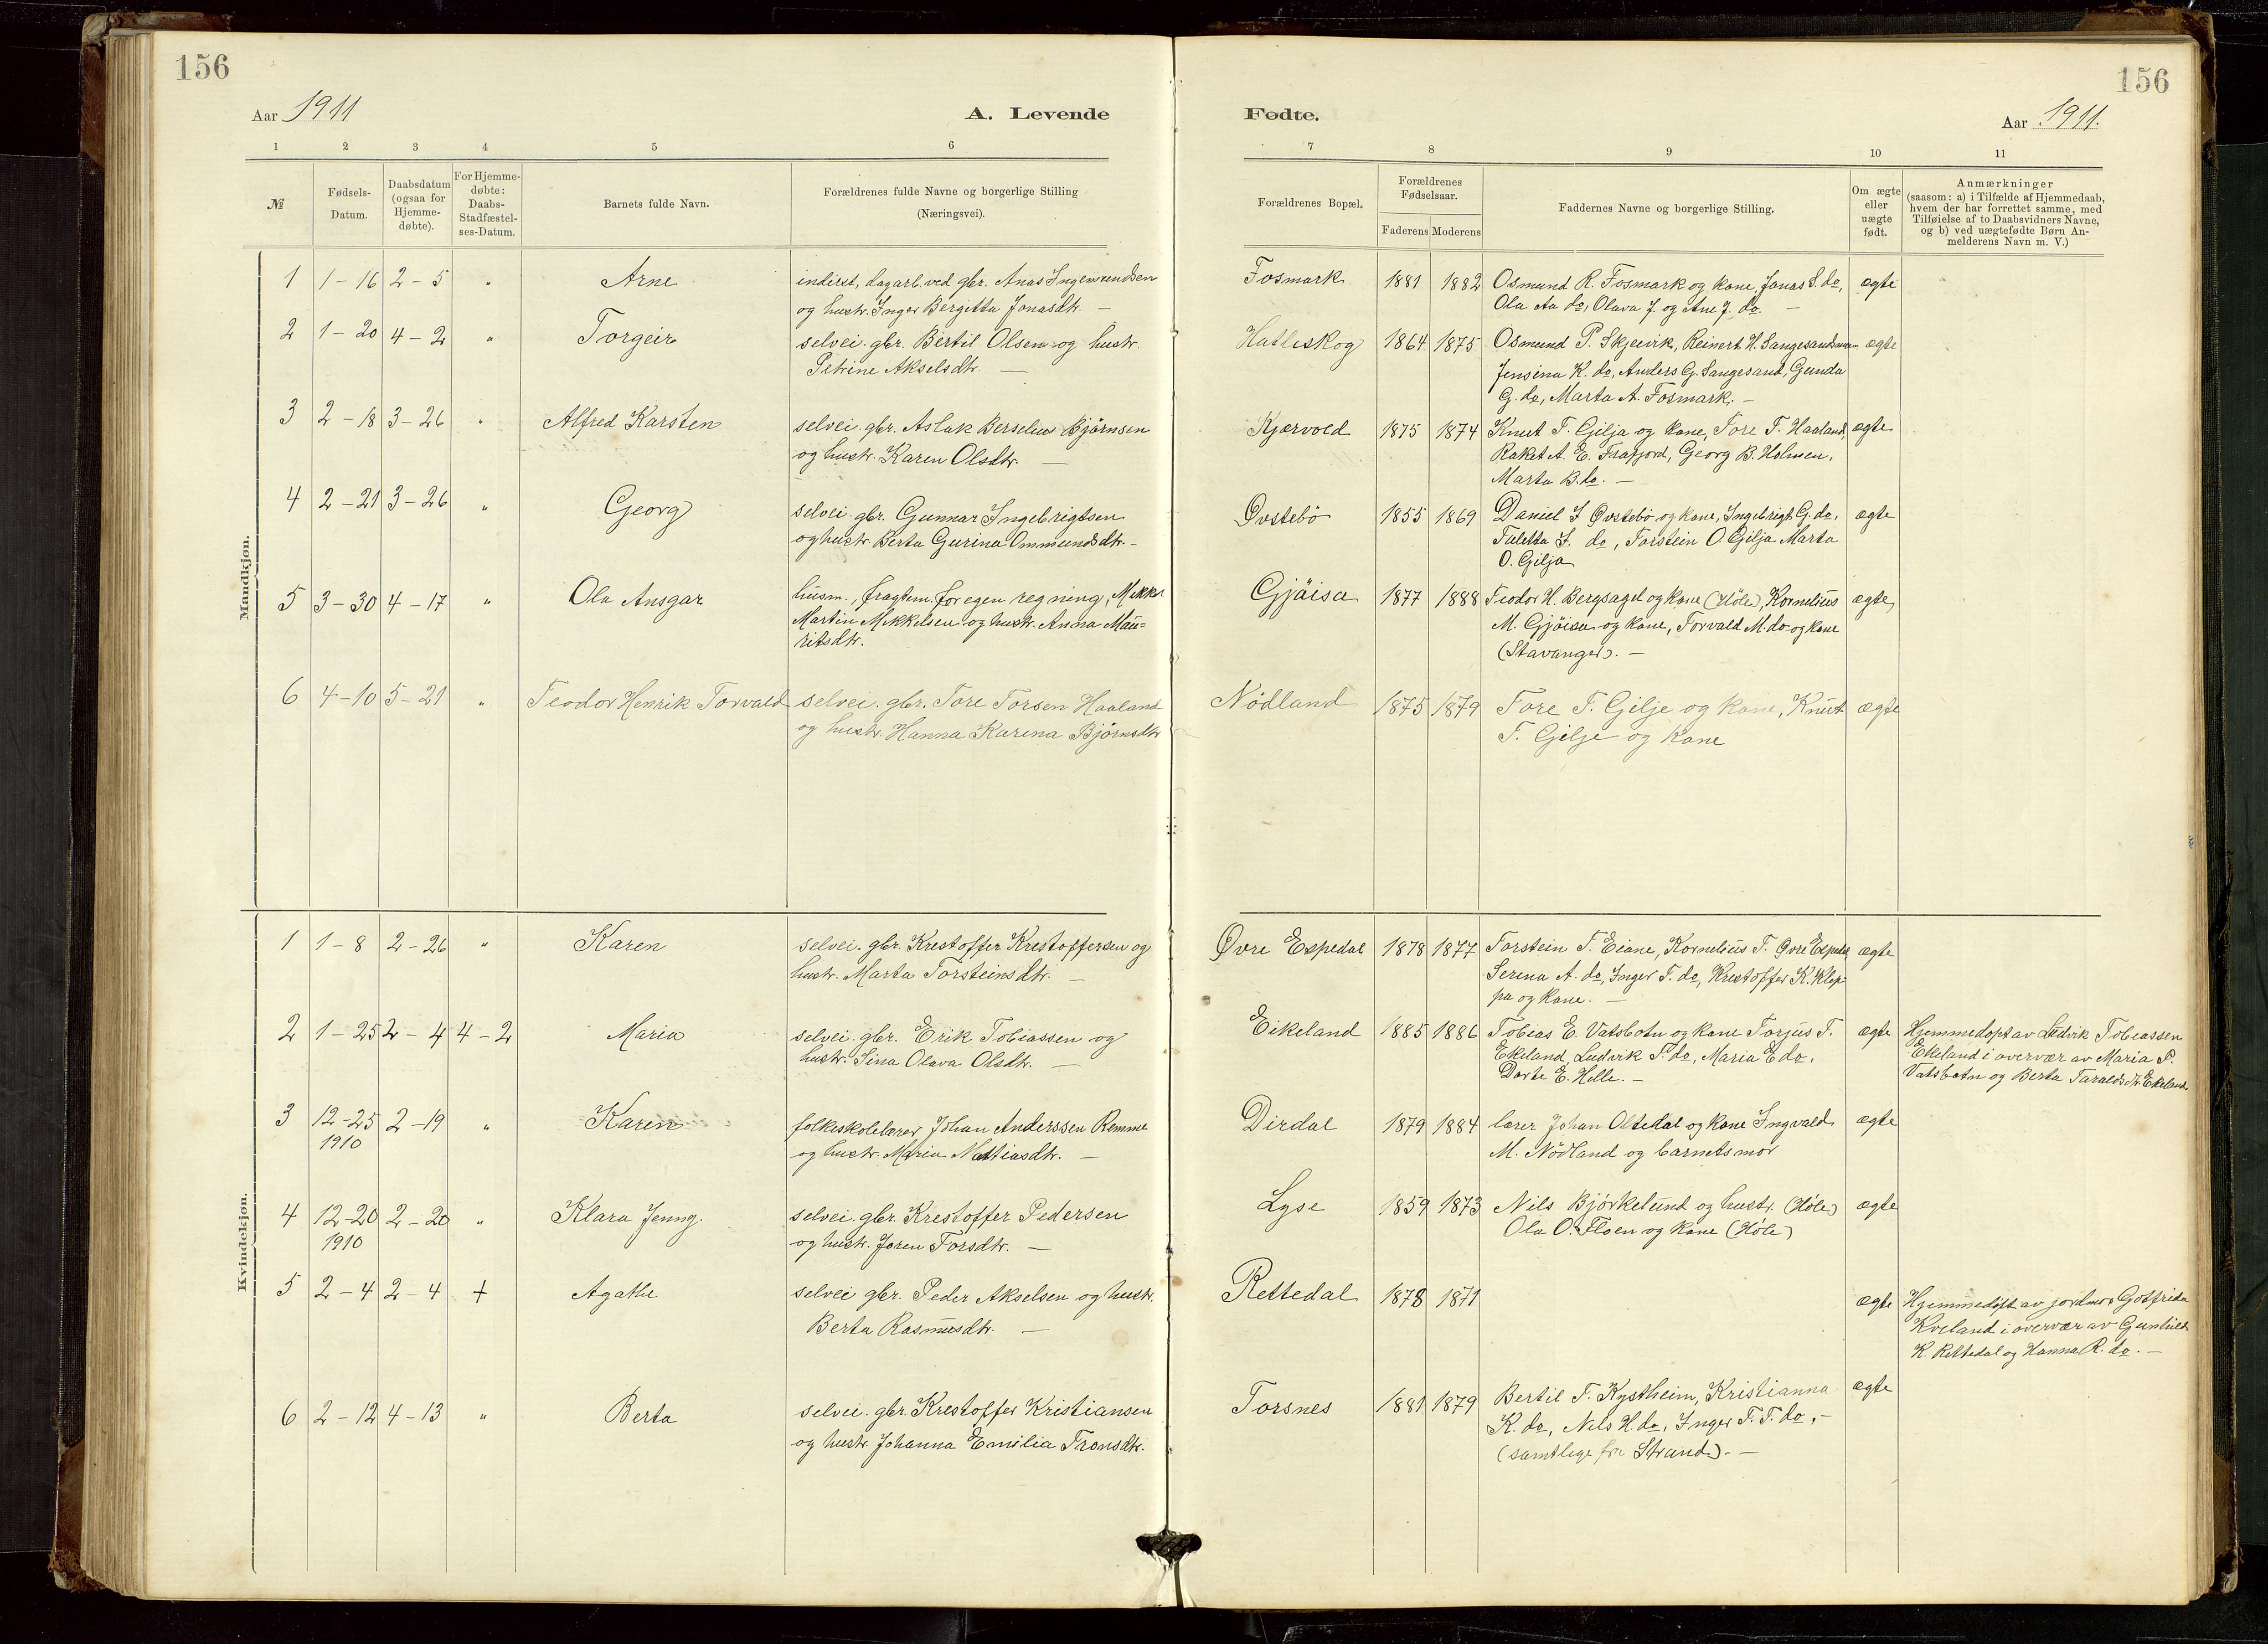 156
156
Aar 1911
A. Levende
Fødte.
Aar 1911.
1 2 3 4 5 6
7 8 9 10 11
№
Fødsels-
Datum.
Daabsdatum
(ogsaa for
Hjemme-
døbte).
For Hjemme-
døbte:
Daabs-
Stadfæstel-
ses-Datum.
Barnets fulde Navn.
Forældrenes fulde Navne og borgerlige Stilling
(Næringsvei).
Forældrenes Bopæl.
Forældrenes
Fødselsaar.
Faderens Moderens
Faddernes Navne og borgerlige Stilling.
Om ægte
eller
uægte
født.
Anmærkninger
(saasom: a) i Tilfælde af Hjemmedaab,
hvem der har forrettet samme, med
Tilføielse af to Daabsvidners Navne,
og b) ved uægtefødte Børn An-
melderens Navn m. V.)
Mandkjøn.
1 1-16 2-5 " Arne
inderst, dagarb. ved gbr. Anas Ingemundsen
og hustr. Inger Bergitta Jonasdtr. —
Fosmark 1881 1882
Osmund R. Fosmark og kone, Jonas S. do,
Ola Aa do, Olava J. og Ane J. do. —
ægte
2 1-20 4-2 " Torgeir
selvei. gbr. Bertil Olsen og hustr.
Petrine Akselsdtr. —
Hatleskog 1864 1875
Osmund P. Skjeivik, Reinert H. Sangesandsmoen
Jensina K. do, Anders G. Sangesand, Gunda
G. do, Marta A. Fosmark. —
ægte
3 2-18 3-26 " Alfred Karsten
selvei. gbr. Aslak Berselius Bjørnsen
og hustr. Karen Olsdtr. —
Kjærvold 1875 1874
Knut T. Gilja og kone, Tore T. Haaland,
Raket A. E. Frafjord, Georg B. Holmen,
Marta B. do. —
ægte
4 2-21 3-26 " Georg
selvei. gbr. Gunnar Ingebrigtsen
og hustr. Berta Gurina Ommundsdtr. —
Øvstebö 1855 1869
Daniel I Øvstebö og kone, Ingebrigt G. do,
Taletta I. do, Torstein O Gilja Marta
O. Gilja
ægte
5 3-30 4-17 " Ola Ansgar
husm., fragtem. for egen regning, Mikkel
Martin Mikkelsen og hustr. Anna Mau=
ritsdtr.
Gjöisa 1877 1888
Teodor H. Bergsagel og kone (Höle), Kornelius
M. Gjöisa og kone, Torvald M. do og kone
(Stavanger). —
ægte
6 4-10 5-21 " Teodor Henrik Torvald
selvei. gbr. Tore Torsen Haaland
og hustr. Hanna Karina Bjørnsdtr
Nödland 1875 1879
Tore T. Gilje og kone, Knut
T. Gilje og kone
ægte
Kvindekjøn.
1 1-8 2-26 " Karen
selvei. gbr. Krestoffer Krestoffersen og
hustr. Marta Torsteinsdtr. —
Øvre Espedal 1878 1877
Torstein T. Eiane, Kornelius T. Øvre Espedal
Serina A. do, Inger T. do, Krestoffer K. Klep-
pa og kone. —
ægte
2 1-25 2-4 4-2 Maria
selvei. gbr. Erik Tobiassen og
hustr. Sina Olava Olsdtr. —
Eikeland 1885 1886
Tobias E. Vatsbotn og kone Torjus T.
Ekeland, Ludvik T. do, Maria E do.
Dorte E. Helle. —
ægte
Hjemmedöpt av Ludvik Tobiassen
Ekeland i overvær av Maria P.
Vatsbotn og Berta Taraldsdtr. Ekeland
3 12-25 2-19 " Karen
1910
folkeskolelærer Johan Anderssen Remme
og hustr. Maria Mattiasdtr. —
Dirdal 1879 1884
lærer Johan Oltedal og kone Ingvald
M. Nödland og barnets mor
ægte
4 12-20 2-20 " Klara Jenny.
1910
selvei. gbr. Krestoffer Pedersen
og hustr. Joren Torsdtr. —
Lyse 1859 1873
Nils Björkelund og hustr. (Höle)
Ola O. Floen og kone (Höle)
ægte
5 2-4 2-4 + Agathe
selvei gbr. Peder Akselsen og hustr.
Berta Rasmusdtr. —
Rettedal 1878 1871
ægte
Hjemmedöpt av jordmor Gotfrida
Kveland i overvær av Gunhild
K. Rettedal og Hanna R. do. —
6 2-12 4-13 " Berta
selvei. gbr. Krestoffer Kristiansen
og hustr. Johanna Emilia Tronsdtr.
Torsnes 1881 1879
Bertil T. Kystheim, Kristianna
K. do, Nils H. do, Inger T. T. do, —
(samtlige fra Strand). —
ægte